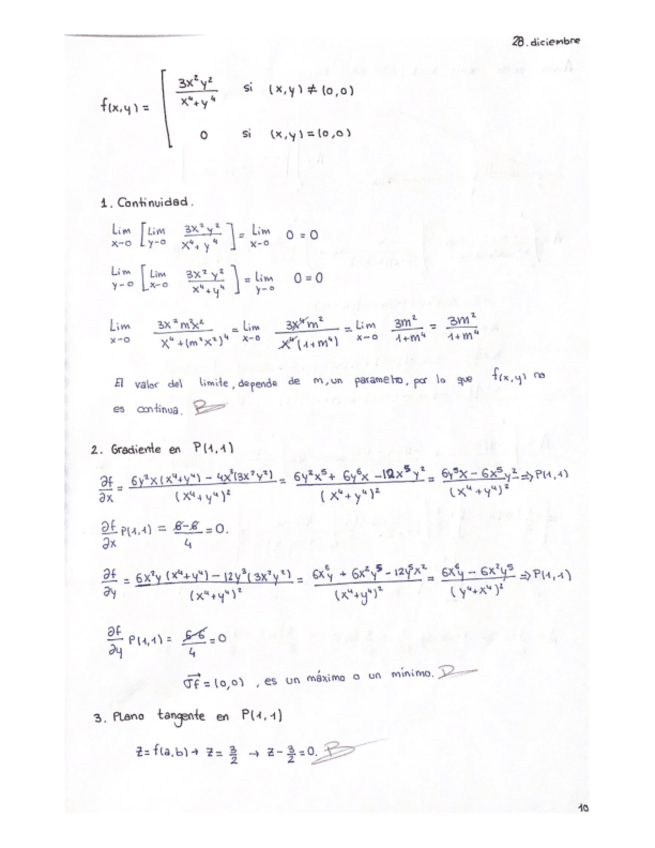 28. diciembre
f(x,y) = [ 3x²y² / x⁴+y⁴ si (x,y) ≠ (0,0)
0 si (x,y) = (0,0)
1. Continuidad.
Lim x→0 [ Lim y→0 3x²y² / x⁴+y⁴ ] = Lim x→0 0 = 0
Lim y→0 [ Lim x→0 3x²y² / x⁴+y⁴ ] = Lim y→0 0 = 0
Lim x→0 3x²m²x² / x⁴+(m⁴x²)⁴ = Lim x→0 3x⁴m² / x⁴(1+m⁴) = Lim x→0 3m² / 1+m⁴ = 3m² / 1+m⁴
El valor del limite, depende de m, un parametro, por lo que f(x,y) no
es continua.
2. Gradiente en P(1,1)
∂f/∂x = 6y²x(x⁴+y⁴) - 4x³(3x²y²) / (x⁴+y⁴)² = 6y²x⁵ + 6y⁶x - 12x⁵y² / (x⁴+y⁴)² = 6y⁶x - 6x⁵y² / (x⁴+y⁴)² ⇒ P(1,1)
∂f/∂x P(1,1) = 6-6 / 4 = 0.
∂f/∂y = 6x²y(x⁴+y⁴) - 12y³(3x²y²) / (x⁴+y⁴)² = 6x⁶y + 6x²y⁵ - 12y⁵x² / (x⁴+y⁴)² = 6x⁶y - 6x²y⁵ / (y⁴+x⁴)² ⇒ P(1,1)
∂f/∂y P(1,1) = 6-6 / 4 = 0
∇f = (0,0), es un máximo o un mínimo.
3. Plano tangente en P(1,1)
z = f(a,b) → z = 3/2 → z - 3/2 = 0.
10